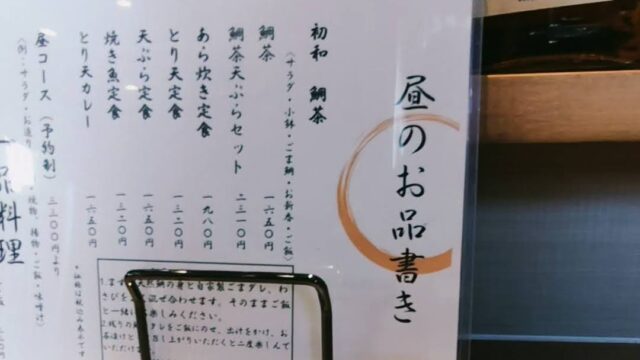 昼のお品書き
初和 鯛茶
(サラダ・小鉢・ごま鯛・お新香・ご飯)
鯛茶 一六五〇円
鯛茶天ぷらセット 二三一〇円
あら炊き定食 一九八〇円
とり天定食 一三二〇円
天ぷら定食 一六五〇円
焼き魚定食 一三二〇円
とり天カレー 一六五〇円
＊価格は税込み表示です
昼コース(予約制) 三三〇〇円より
(例・サラダ・お造り・焼物、揚物・ご飯・味噌汁)
一品料理
1.まず、天然鯛の身と自家製ごまダレ、わ
さびを 混ぜ合わせます。そのままご飯
と一緒に しみください。
2.残りの鯛 タレをご飯にのせ、出汁をかけ、お
茶漬けと し上がりいただくと二度楽しんで
いただけま